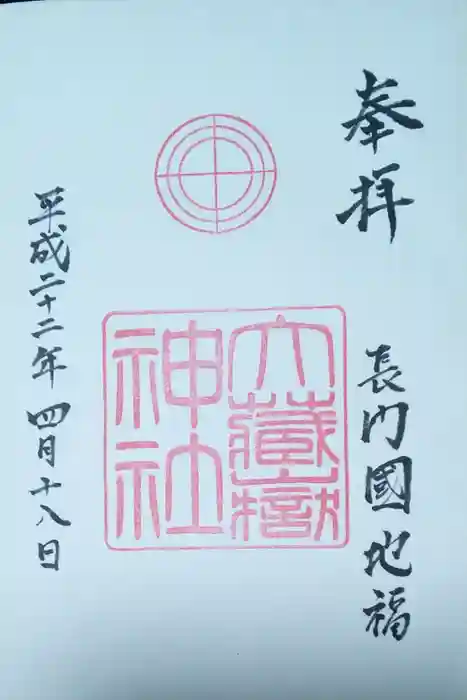 奉拝
長門國地福
大蔵嶽
神社
平成二十二年四月十八日